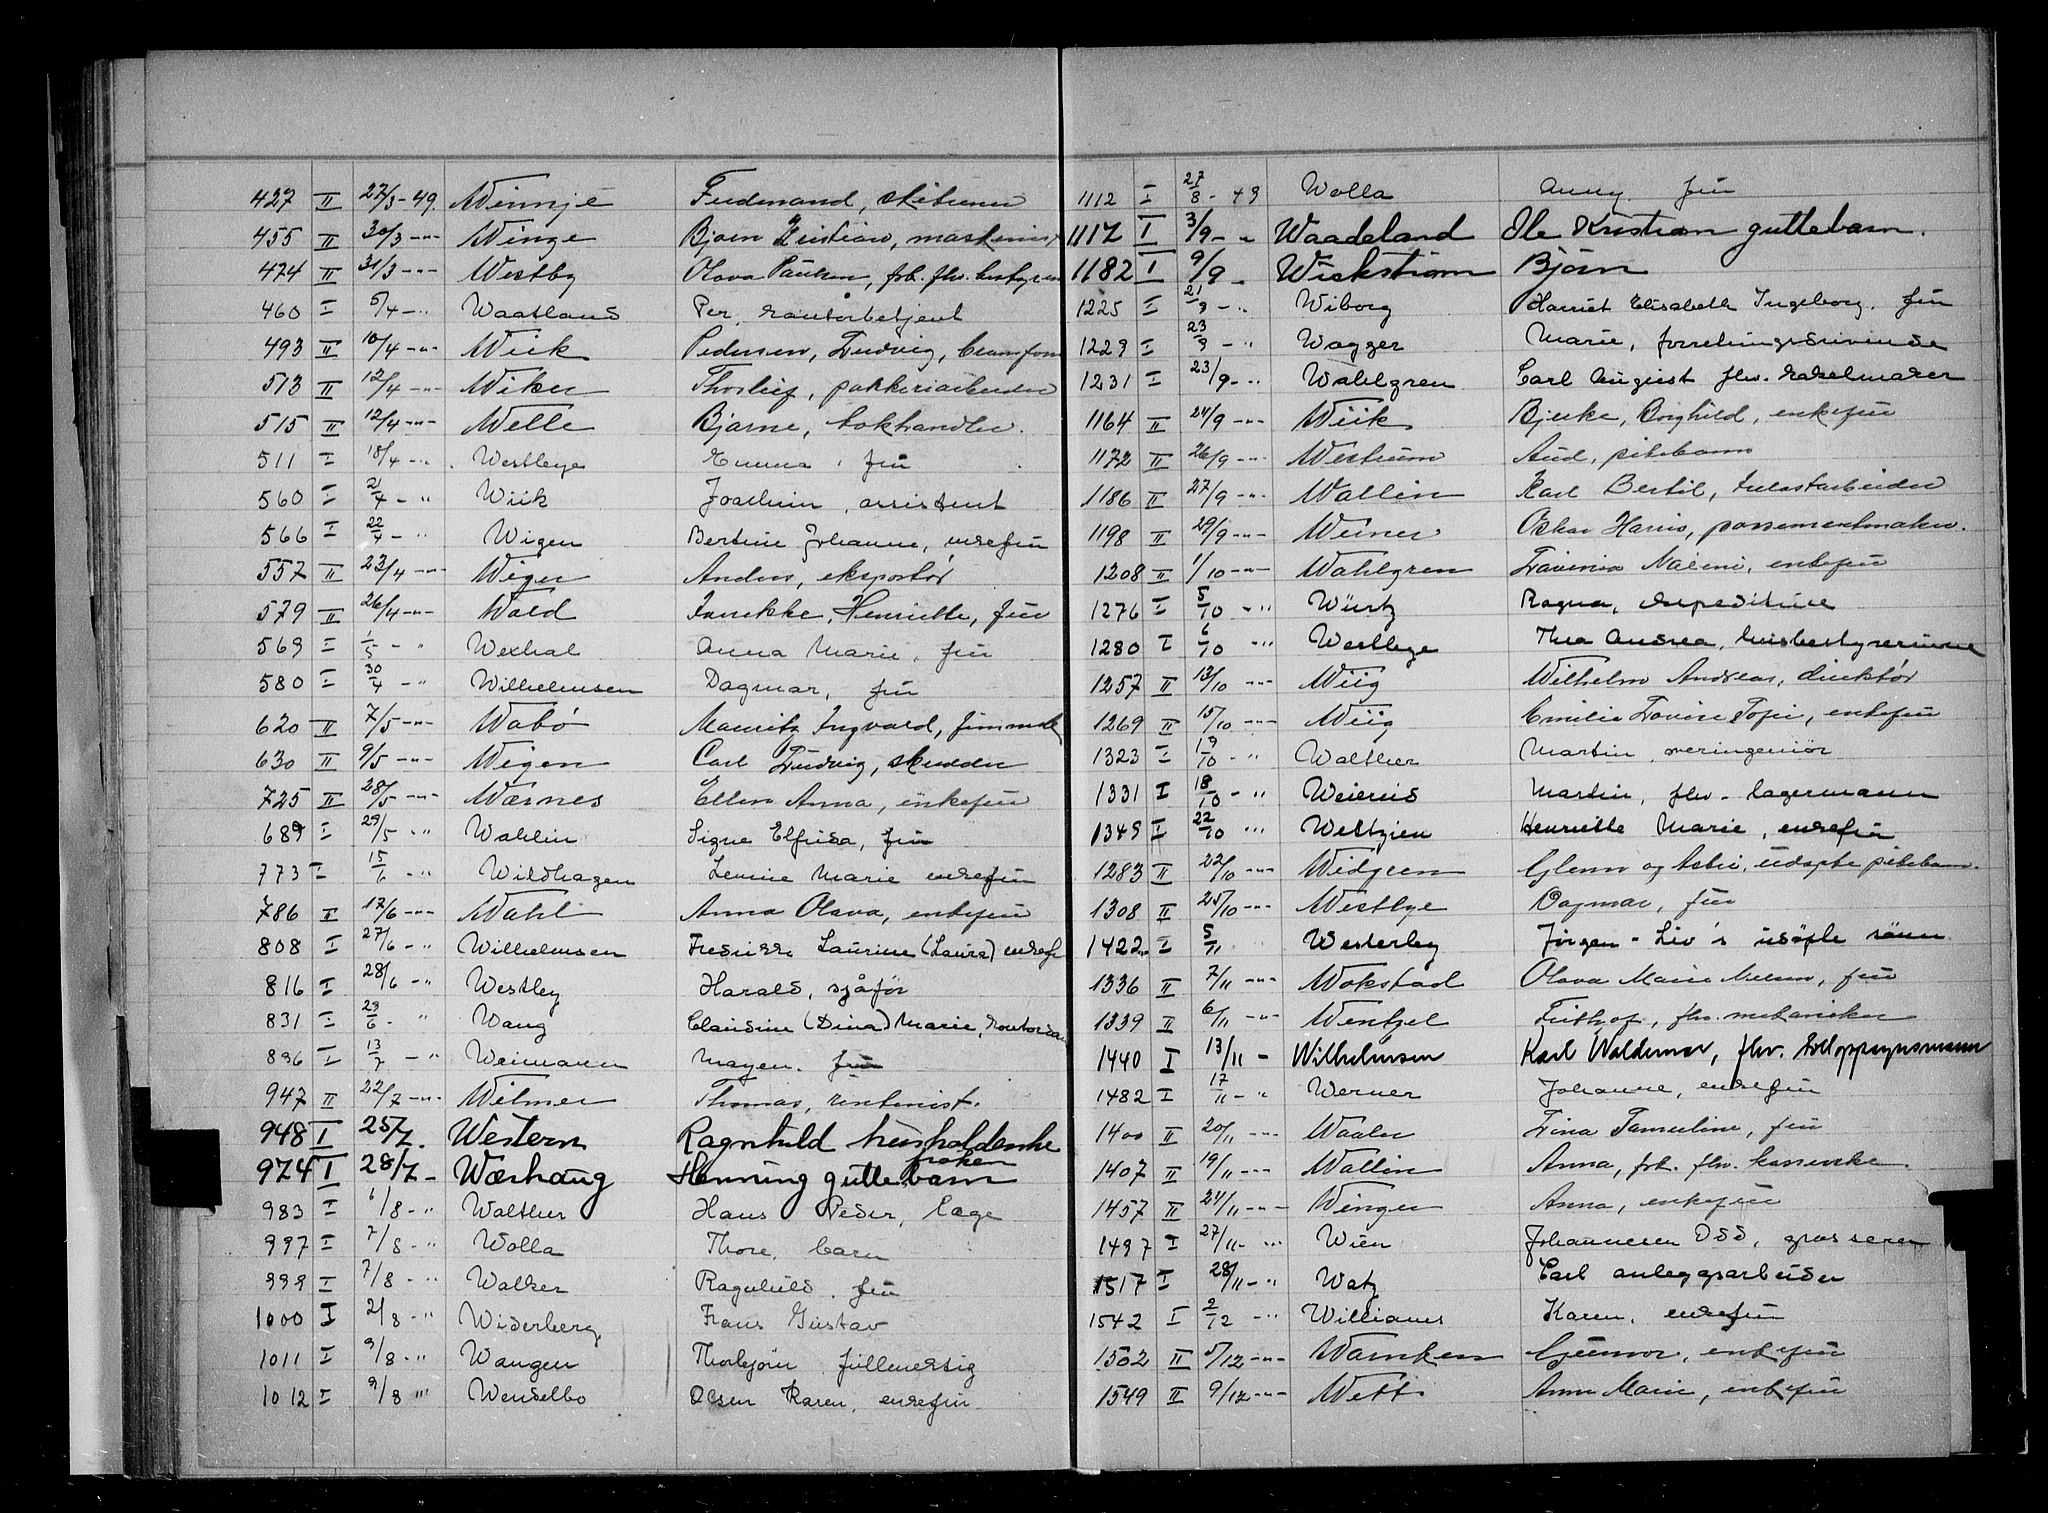 427 II 27/3-49. Winnje Ferdinand,
455 II 30/3-"- Winge Bjørn Kristian, maskinist
474 II 31/3-"- Westby Olava Paulsen, frk. fhv. bestyrer
460 I 5/4-" Waatland Per, kontorbetjent
493 II 10/4-"- Wiik Pedersen, Ludvig,
513 II 12/4-"- Wiker Thorleif, pakkeriarbeider
515 II 12/4-"- Welle Bjarne, bokhandler.
511 I 18/4-" Westbye Emma, fru
560 I 2/4-" Wiik Joachim, assistent
566 I 22/4-" Wigen Bertine Johanne, enkefru
557 II 23/4-"- Wiger Anders, eksportør
579 II 26/4-"- Wold Jannikke, Henriette, fru
569 I 1/5-" Wexhal Anna Marie, fru
580 I 30/4-" Wilhelmsen Dagmar, fru
620 II 7/5-"- Wabø Mauritz Ingvald,
630 II 9/5-"- Wigen Carl Ludvig, skredder
725 II 28/5-"- Wærnes Ellen Anna, enkefru
689 I 29/5-" Wahlin Signe Elfrida, fru
773 I 15/6-" Wildhagen Lemine Marie enkefru
786 II 17/6-"- Wahl Anna Olava, enkefru
808 I 27/6-" Wilhelmsen Fredrikke Laurine (Laura) enkef
816 I 28/6-" Westley Harald, sjåfør
831 I 29/6-" Wang Claudine (Dina) Marie, kontorda
896 I 13/7-" Weimann Magen. fru
947 II 22/7-"- Wilmer Thomas, rentenist.
948 I 25/7. Western Ragnhild husholdenke
frøken
974 I 28/7- Wærhaug Henning guttebarn
983 I 6/8-" Walther Hans Peder, læge
997 I 7/8-" Wolla Thore, barn
999 I 7/8-" Walker Ragnhild, fru
1000 I 2/8-" Widerberg, Frans Gustav
1011 I 9/8-" Wangen Thorbjørn fullmektig
1012 I 9/8-" Wendelbo Olsen Karen, enkefru
1112 I 27/8-49 Wolla Anny, fru
1117 I 3/9-" Waadeland Ole Kristian guttebarn.
1182 I 9/9- Wickstrøm Bjørn
1225 I 21/9-" Wiborg Harriet Elisabeth Ingeborg, fru
1229 I 23/9-" Wagger Marie, forretningsdrivende
1231 I 23/9-" Wahlgren Carl August fhv. kakelmaker
1164 II 24/9-"- Wiik Bjerke, Borghild, enkefru
1172 II 26/9-"- Westrum Aud, pikebarn
1186 II 27/9-"- Wallin Karl Bertil,
1198 II 29/9-"- Weiner Oskar Harris, possementmaker.
1208 II 1/10-"- Wahlgren Lavinia Naëmi, enkefru
1276 I 5/10-" Würtz Ragna, ekspeditrice
1280 I 6/10-" Westbye Thea Andrea, husbestyrerinne
1257 II 13/10-"- Wiig Wilhelm Andreas, direktør
1269 II 15/10-"- Wiig Emilie Lovise Tofie, enkefru
1323 I 19/10-" Walther Martin, overingeniør
1331 I 18/10-" Weiereid Martin, fhv. lagermann
1349 I 22/10-" Weltzien Henriette Marie, enkefru
1283 II 22/10-"- Widgren Glenn og Astri, udøpte pikebarn.
1308 II 25/10-"- Westbye Dagmar, fru
1422 I 5/11 Westerby Jørgen - Liv's udøpte sønn
1336 II 7/11-"- Wokstad Olava Marie Nelsen, fru
1339 II 6/11-"- Wentzel Frithjof, fhv. mekaniker
1440 I 13/11- Wilhelmsen Karl Waldemar, fhv. tolloppsynsmann
1482 I 17/11-" Werner Johanne, enkefru
1400 II 20/11-"- Waaler Lina Tomeline, fru
1407 II 19/11-"- Wallin Anna, frk. fhv. kasserske.
1457 II 24/11-"- Winger Anna, enkefru
1497 I 27/11-" Wien Johannesen Odd, grosserer
1517 I 28/11-" Watz Carl anleggsarbeider
1542 I 2/12-" Williams Karen, enkefru
1502 II 5/12-"- Warnken Gunvor, enkefru
1549 II 9/12-"- Wett Anna Marie, enkefru